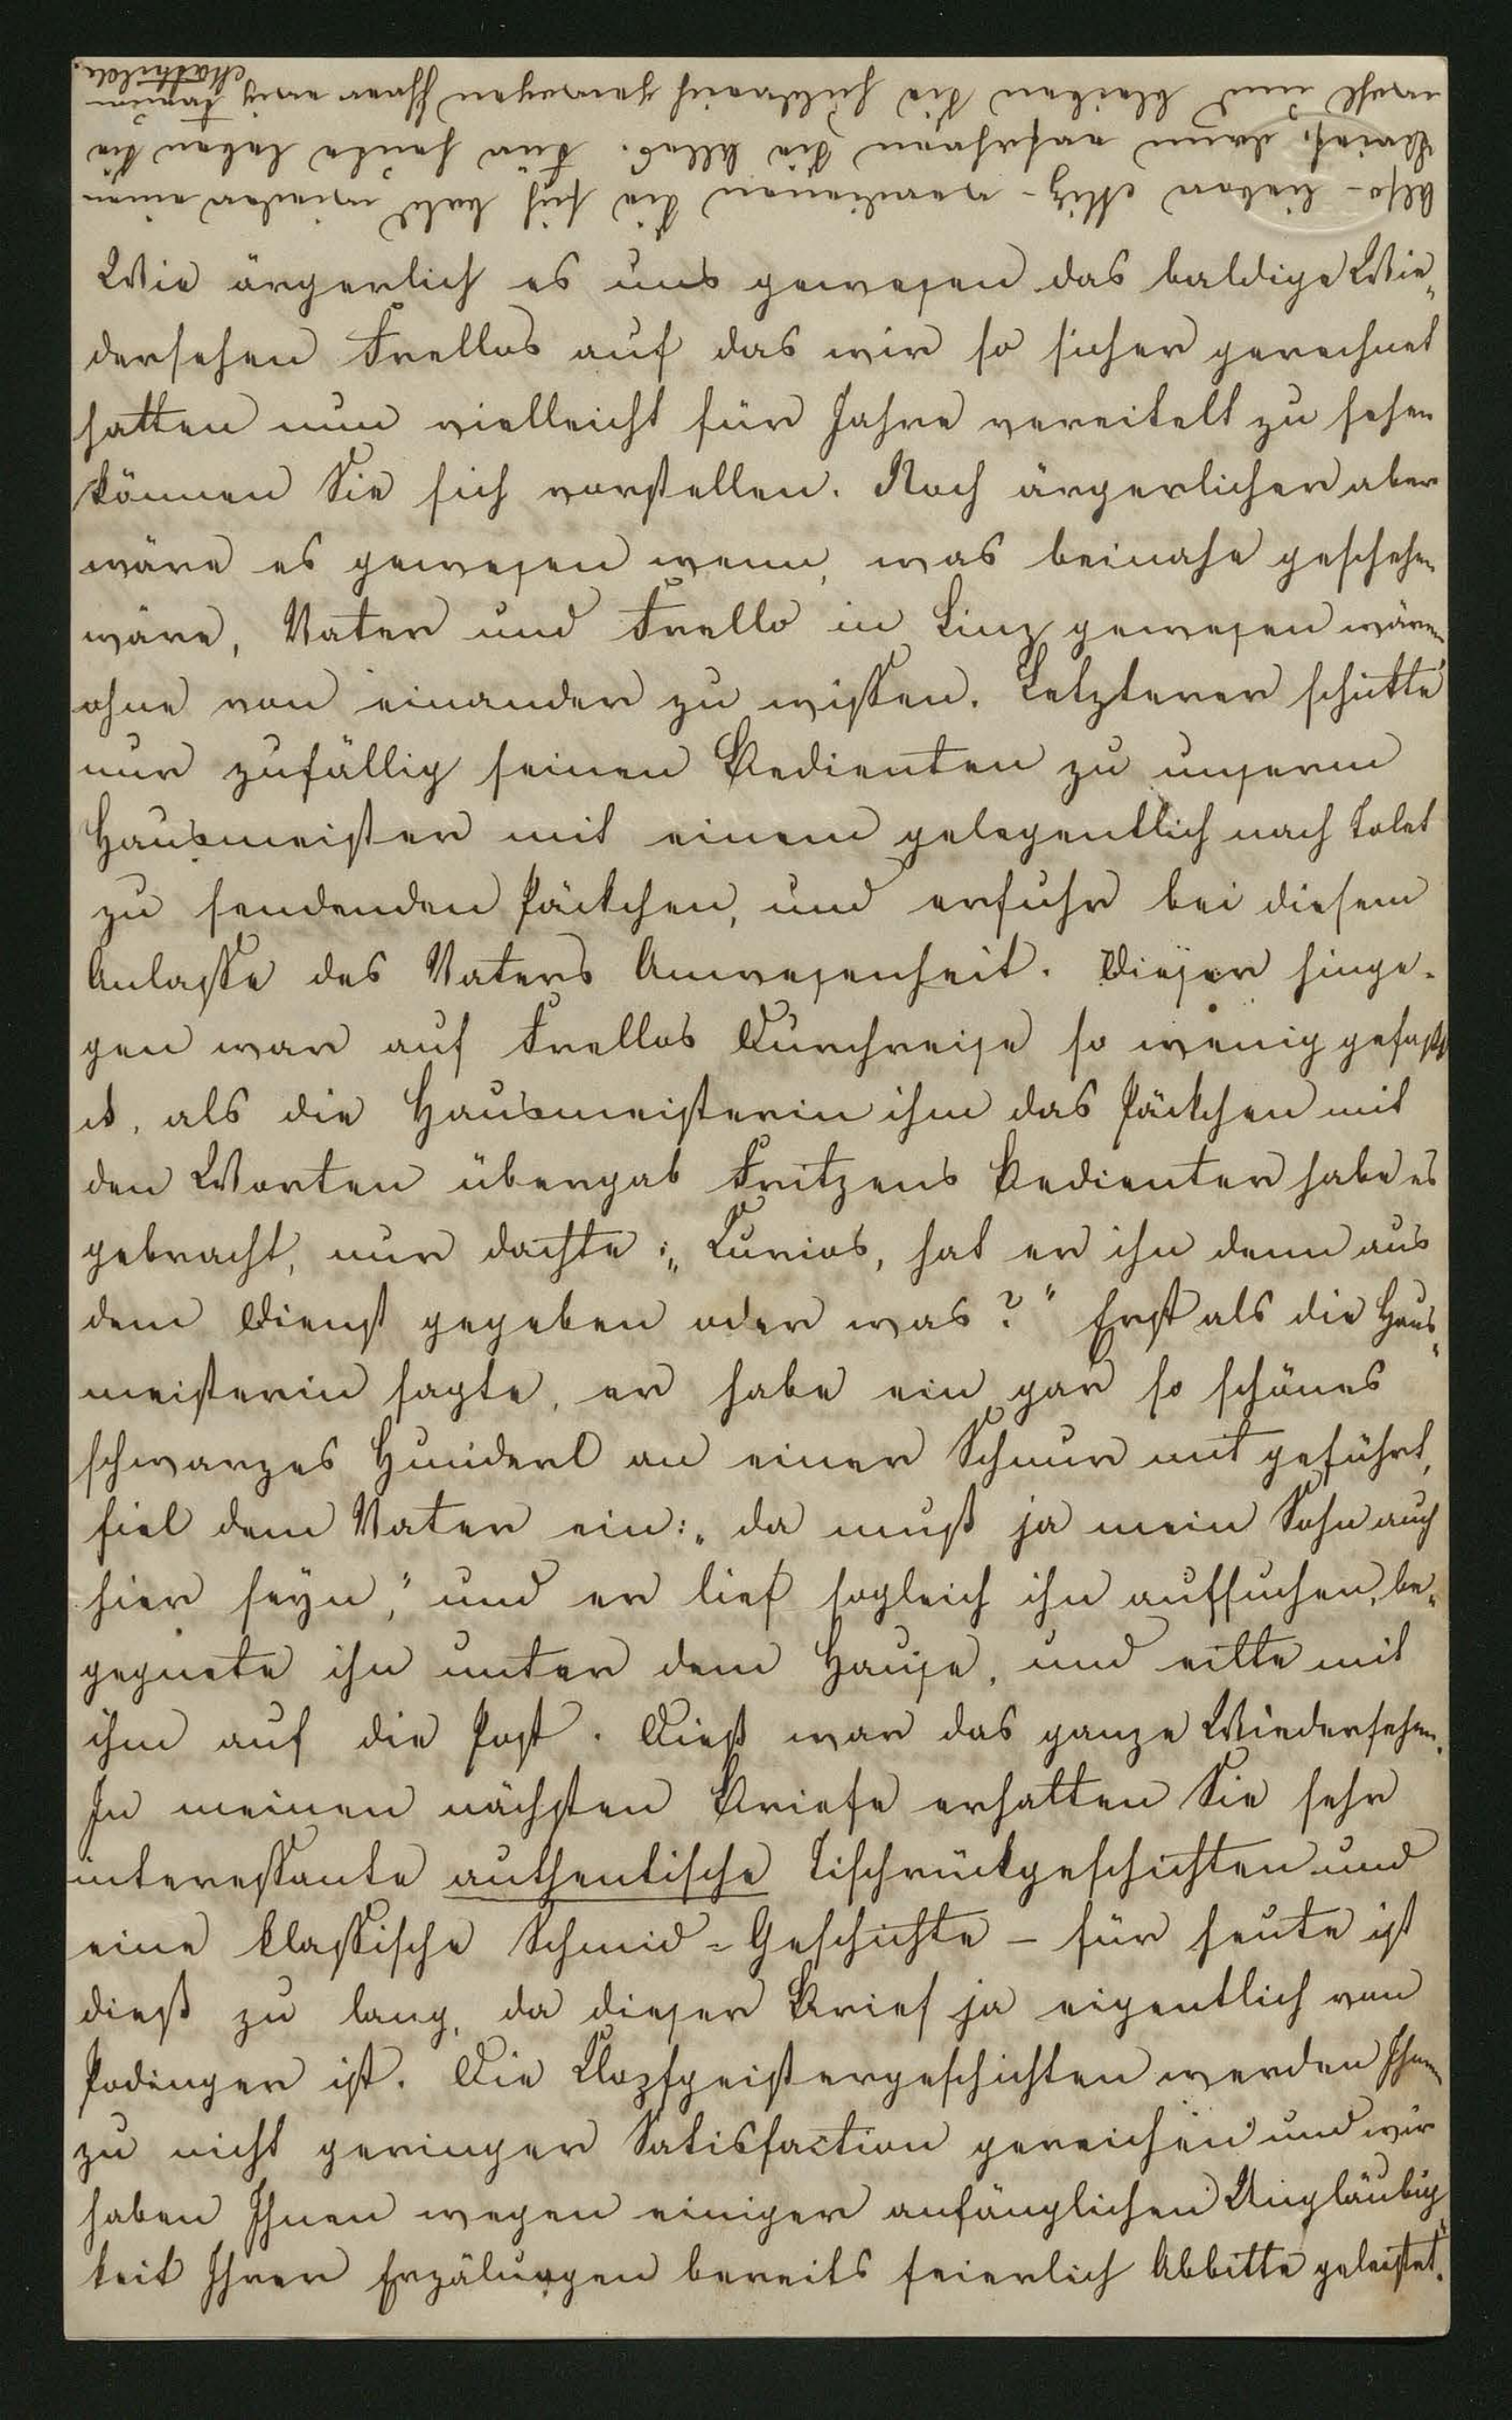 Wie ärgerlich es uns gewesen das baldige Wie„
dersehen Frellos auf das wir so sicher gerechnet
hatten nun vielleicht für Jahre vereitelt zu sehen
können Sie sich vorstellen. Noch ärgerlicher aber
wäre es gewesen wenn, was beinahe geschehen
wäre, Vater und Frello in Linz gewesen wären,
ohne von einander zu wissen. Letzterer schickte
nur zufällig seinen Bedienten zu unserm
Hausmeister mit einem gelegentlich nach Tolet
zu sendenden Päckchen, und erfuhr bei diesem
Anlasse des Vaters Anwesenheit. Dieser hinge-
gen war auf Frellos Durchreise so wenig gefaßt
d, als die Hausmeisterin ihm das Päckchen mit
den Worten übergab Fritzens Bedienter habe es
gebracht, nur dachte: „Curios, hat er ihn denn aus
dem Dienst gegeben oder was?" Erst als die Haus„
meisterin sagte, er habe ein gar so schönes
schwarzes Hunderl an einer Schnur mit geführt,
fiel dem Vater ein: „da muß ja mein Sohn auch
hier seyn," und er lief sogleich ihn aufsuchen, be„
gegnete ihn unter dem Hause, und eilte mit
ihm auf die Post. Dieß war das ganze Wiedersehen.
In meinen nächsten Briefe erhalten Sie sehr
interessante authentische Tischrückgeschichten und
eine klassische Schmid=Geschichte – für heute ist
dieß zu lang, da dieser Brief ja eigentlich von
Podinger ist. Die Klopfgeistergeschichten werden Ihnen
zu nicht geringer Satisfaction gereichen und wir
haben Ihnen wegen einiger anfänglichen Ungläubig„
keit Ihrer Erzälungen bereits feierlich Abbitte geleistet.
Also – lieber Itz – verdienen Sie sich bald wieder einen
Brief, dann erfahren Sie Alles. Für heute leben Sie
wohl und bleiben Sie hübsch gewogen Ihrer
Mathilde.